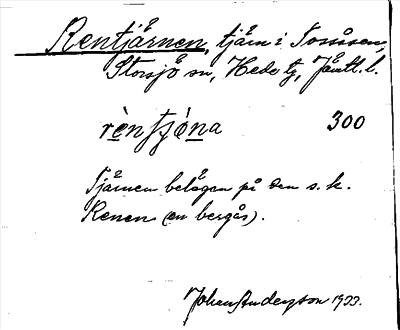 Rentjärnen, tjärn i Torsåsen,
Storsjö sn, Hede tg, Jämtl. l.
rèntjὸna 300
Tjärnen belägen på den s. k.
Renen (en bergås).
Johan Anderzson 1933.